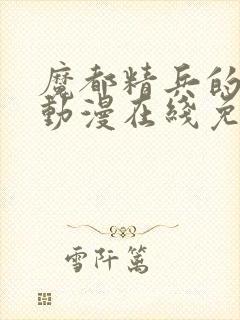 魔都精兵的
動漫在綫免
雪阡篱